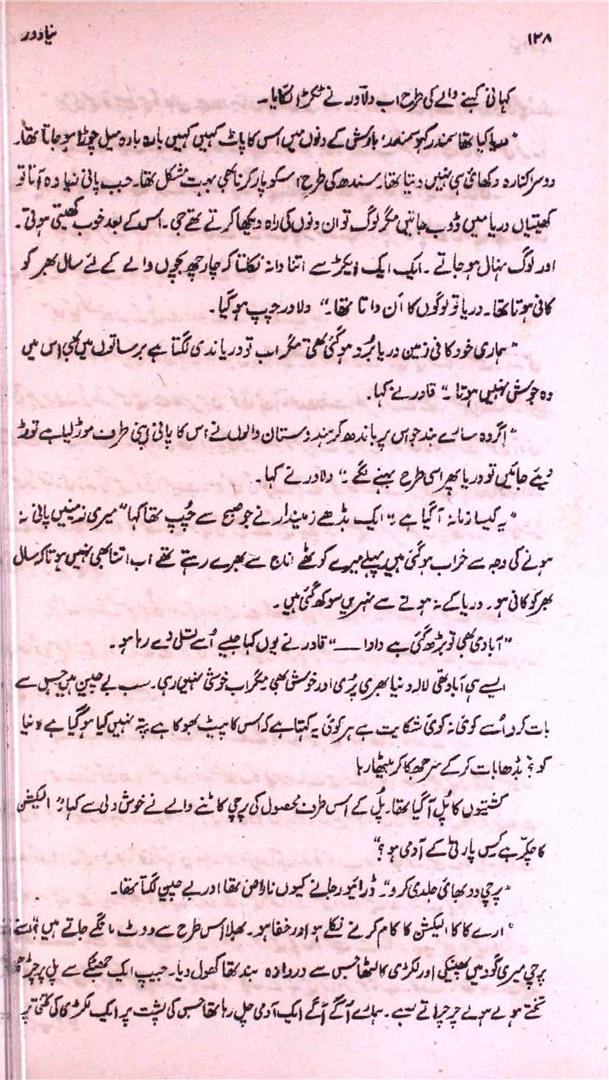 ۱۳۸
نیا دور
کہانی کہنے والے کی طرح اب دلاور نے ٹکڑا لگایا۔
"دریا کیا تھا سمندر کہو سمندر؛ بارش کے دنوں میں اس کا پاٹ کہیں کہیں بارہ بارہ میل چوڑا ہو جاتا تھا۔
دوسرا کنارہ دکھائی ہی نہیں دیتا تھا۔ سندھ کی طرح اسکو پار کرنا بھی بہت مشکل تھا۔ جب پانی نیا وہ آتا تو
کھیتیاں دریا میں ڈوب جاتیں مگر لوگ تو ان دنوں کی راہ دیکھا کرتے تھے جی۔ اس کے بعد خوب کھیتی ہوتی۔
اور لوگ نہال ہو جاتے۔ ایک ایک ایکڑ سے اتنا دانہ نکلتا کہ چار چھ بچوں والے کے لئے سال بھر کو
کافی ہوتا تھا۔ دریا تو لوگوں کا اَن داتا تھا۔" دلاور چپ ہو گیا۔
"ہماری خود کافی زمین دریا بُرد ہو گئی تھی مگر اب تو دریا ندی لگتا ہے برساتوں میں بھی اس میں
وہ جوش نہیں ہوتا۔" قادر نے کہا۔
"اگر وہ سارے بند جو اس پر باندھ کر ہندوستان والوں نے اس کا پانی اپنی طرف موڑ لیا ہے توڑ
دیئے جائیں تو دریا پھر اسی طرح بہنے لگے۔" دلاور نے کہا۔
"یہ کیسا زمانہ آگیا ہے" ایک بڈھے زمیندار نے جو صبح سے چُپ تھا کہا "میری زمینیں پانی نہ
ہونے کی وجہ سے خراب ہو گئی ہیں پہلے میرے کوٹھے اناج سے بھرے رہتے تھے اب اتنا بھی نہیں ہوتا کہ سال
بھر کو کافی ہو۔ دریا کے نہ ہونے سے نہریں سوکھ گئی ہیں۔
"آبادی بھی تو بڑھ گئی ہے دادا ——" قادر نے یوں کہا جیسے اُسے تسلی دے رہا ہو۔
ایسے ہی آباد تھی لالہ دنیا بھری پُری اور خوشی بھی مگر اب خوشی نہیں رہی۔ سب بے چین ہیں جس سے
بات کرو اُسے کوئی نہ کوئی شکایت ہے ہر کوئی یہ کہتا ہے کہ اس کا پیٹ بھوکا ہے پتہ نہیں کیا ہو گیا ہے دنیا
کو؟ بڈھا بات کر کے سر جھکا کر بیٹھا رہا
کشتیوں کا پُل آگیا تھا۔ پُل کے اس طرف محصول کی پرچی کاٹنے والے نے خوش دلی سے کہا؛ "الیکشن
کا چکر ہے کیس پارٹی کے آدمی ہو؟"
"پرچی دو بھائی جلدی کرو"۔ ڈرائیور جانے کیوں ناراض تھا اور بے چین لگتا تھا۔
"ارے کاکا الیکشن کا کام کرنے نکلے ہو اور خفا ہو۔ بھلا اس طرح سے ووٹ مانگے جاتے ہیں" اسنے
پرچی میری گود میں پھینکی اور لکڑی کا لٹھا جس سے دروازہ بند تھا کھول دیا۔ جیپ ایک جھٹکے سے پل پر چڑھ
تختے ہولے ہولے چرچراتے رہے۔ ہمارے آگے آگے ایک آدمی چل رہا تھا جس کی پشت پر ایک لکڑی کی تختی پر